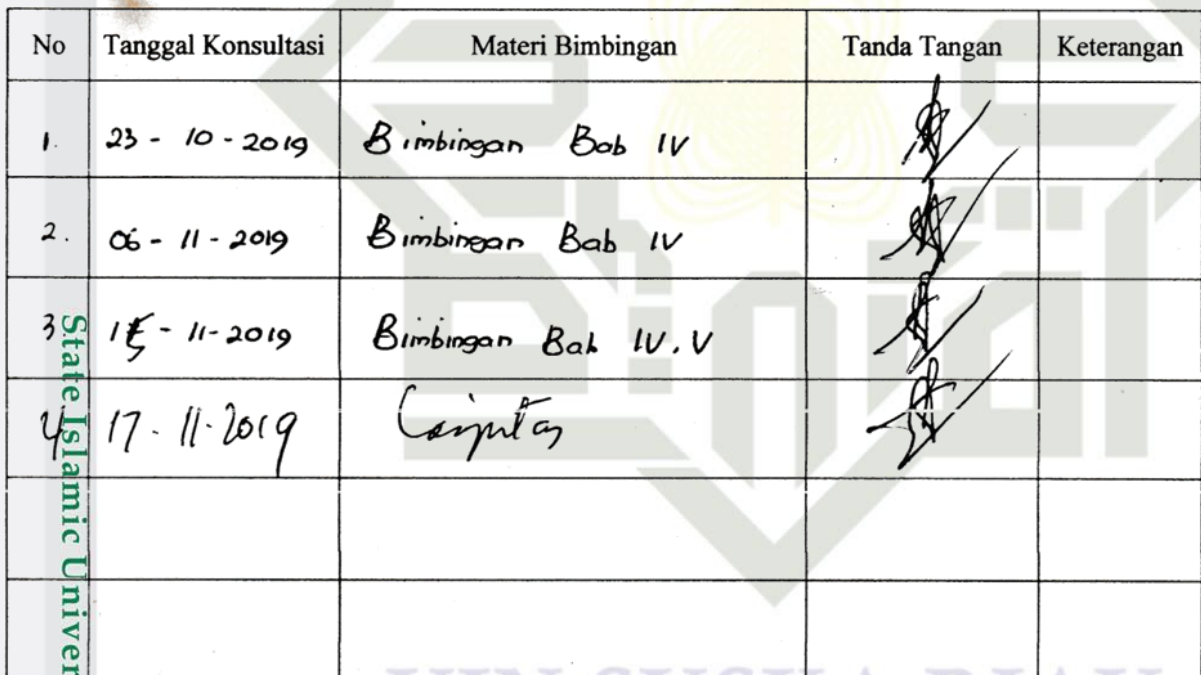 No Tanggal Konsultasi Materi Bimbingan Tanda Tangan Keterangan
1. 23 - 10 - 2019 Bimbingan Bab IV
2. 06 - 11 - 2019 Bimbingan Bab IV
3 - 11 - 2019 Bimbingan Bab IV. V
4. 17 - 11 - 2019
State Islamic Univer
UIN SUSKA RIAU